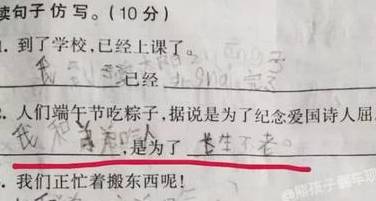 读句子仿写。(10分)
1. 到了学校,已经上课了。
我 已经
2. 人们端午节吃粽子,据说是为了纪念爱国诗人屈
我和爸爸吃人,是为了长生不老。
. 我们正忙着搬东西呢!
@熊孩子